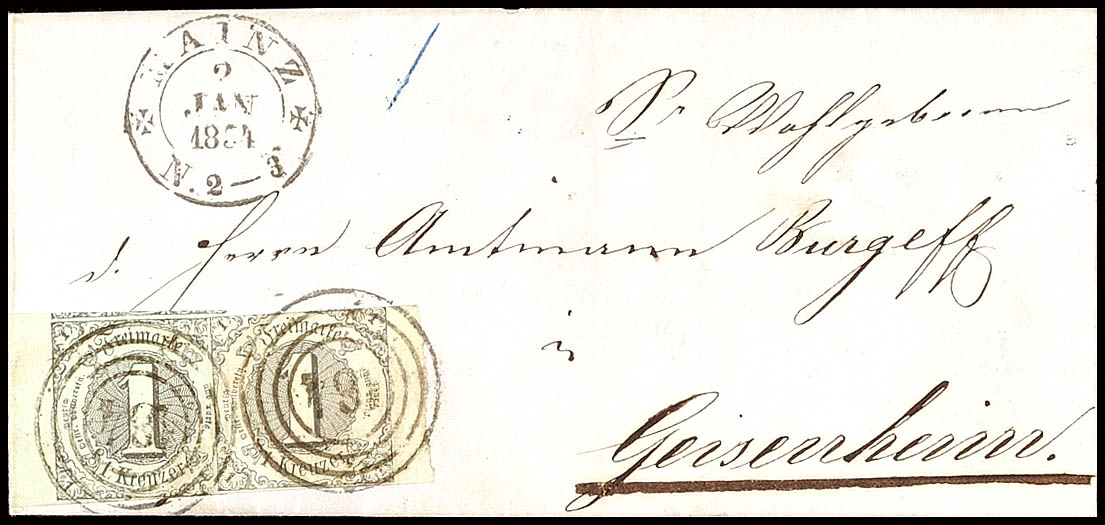 MAINZ
2
JAN
1854
N. 2–3
Sr Wohlgeboren
d. Herrn Amtmann Burgeff
in
Geisenheim.
Freimarke Freimarke
1 1
1 Kreuzer. 1 Kreuzer.